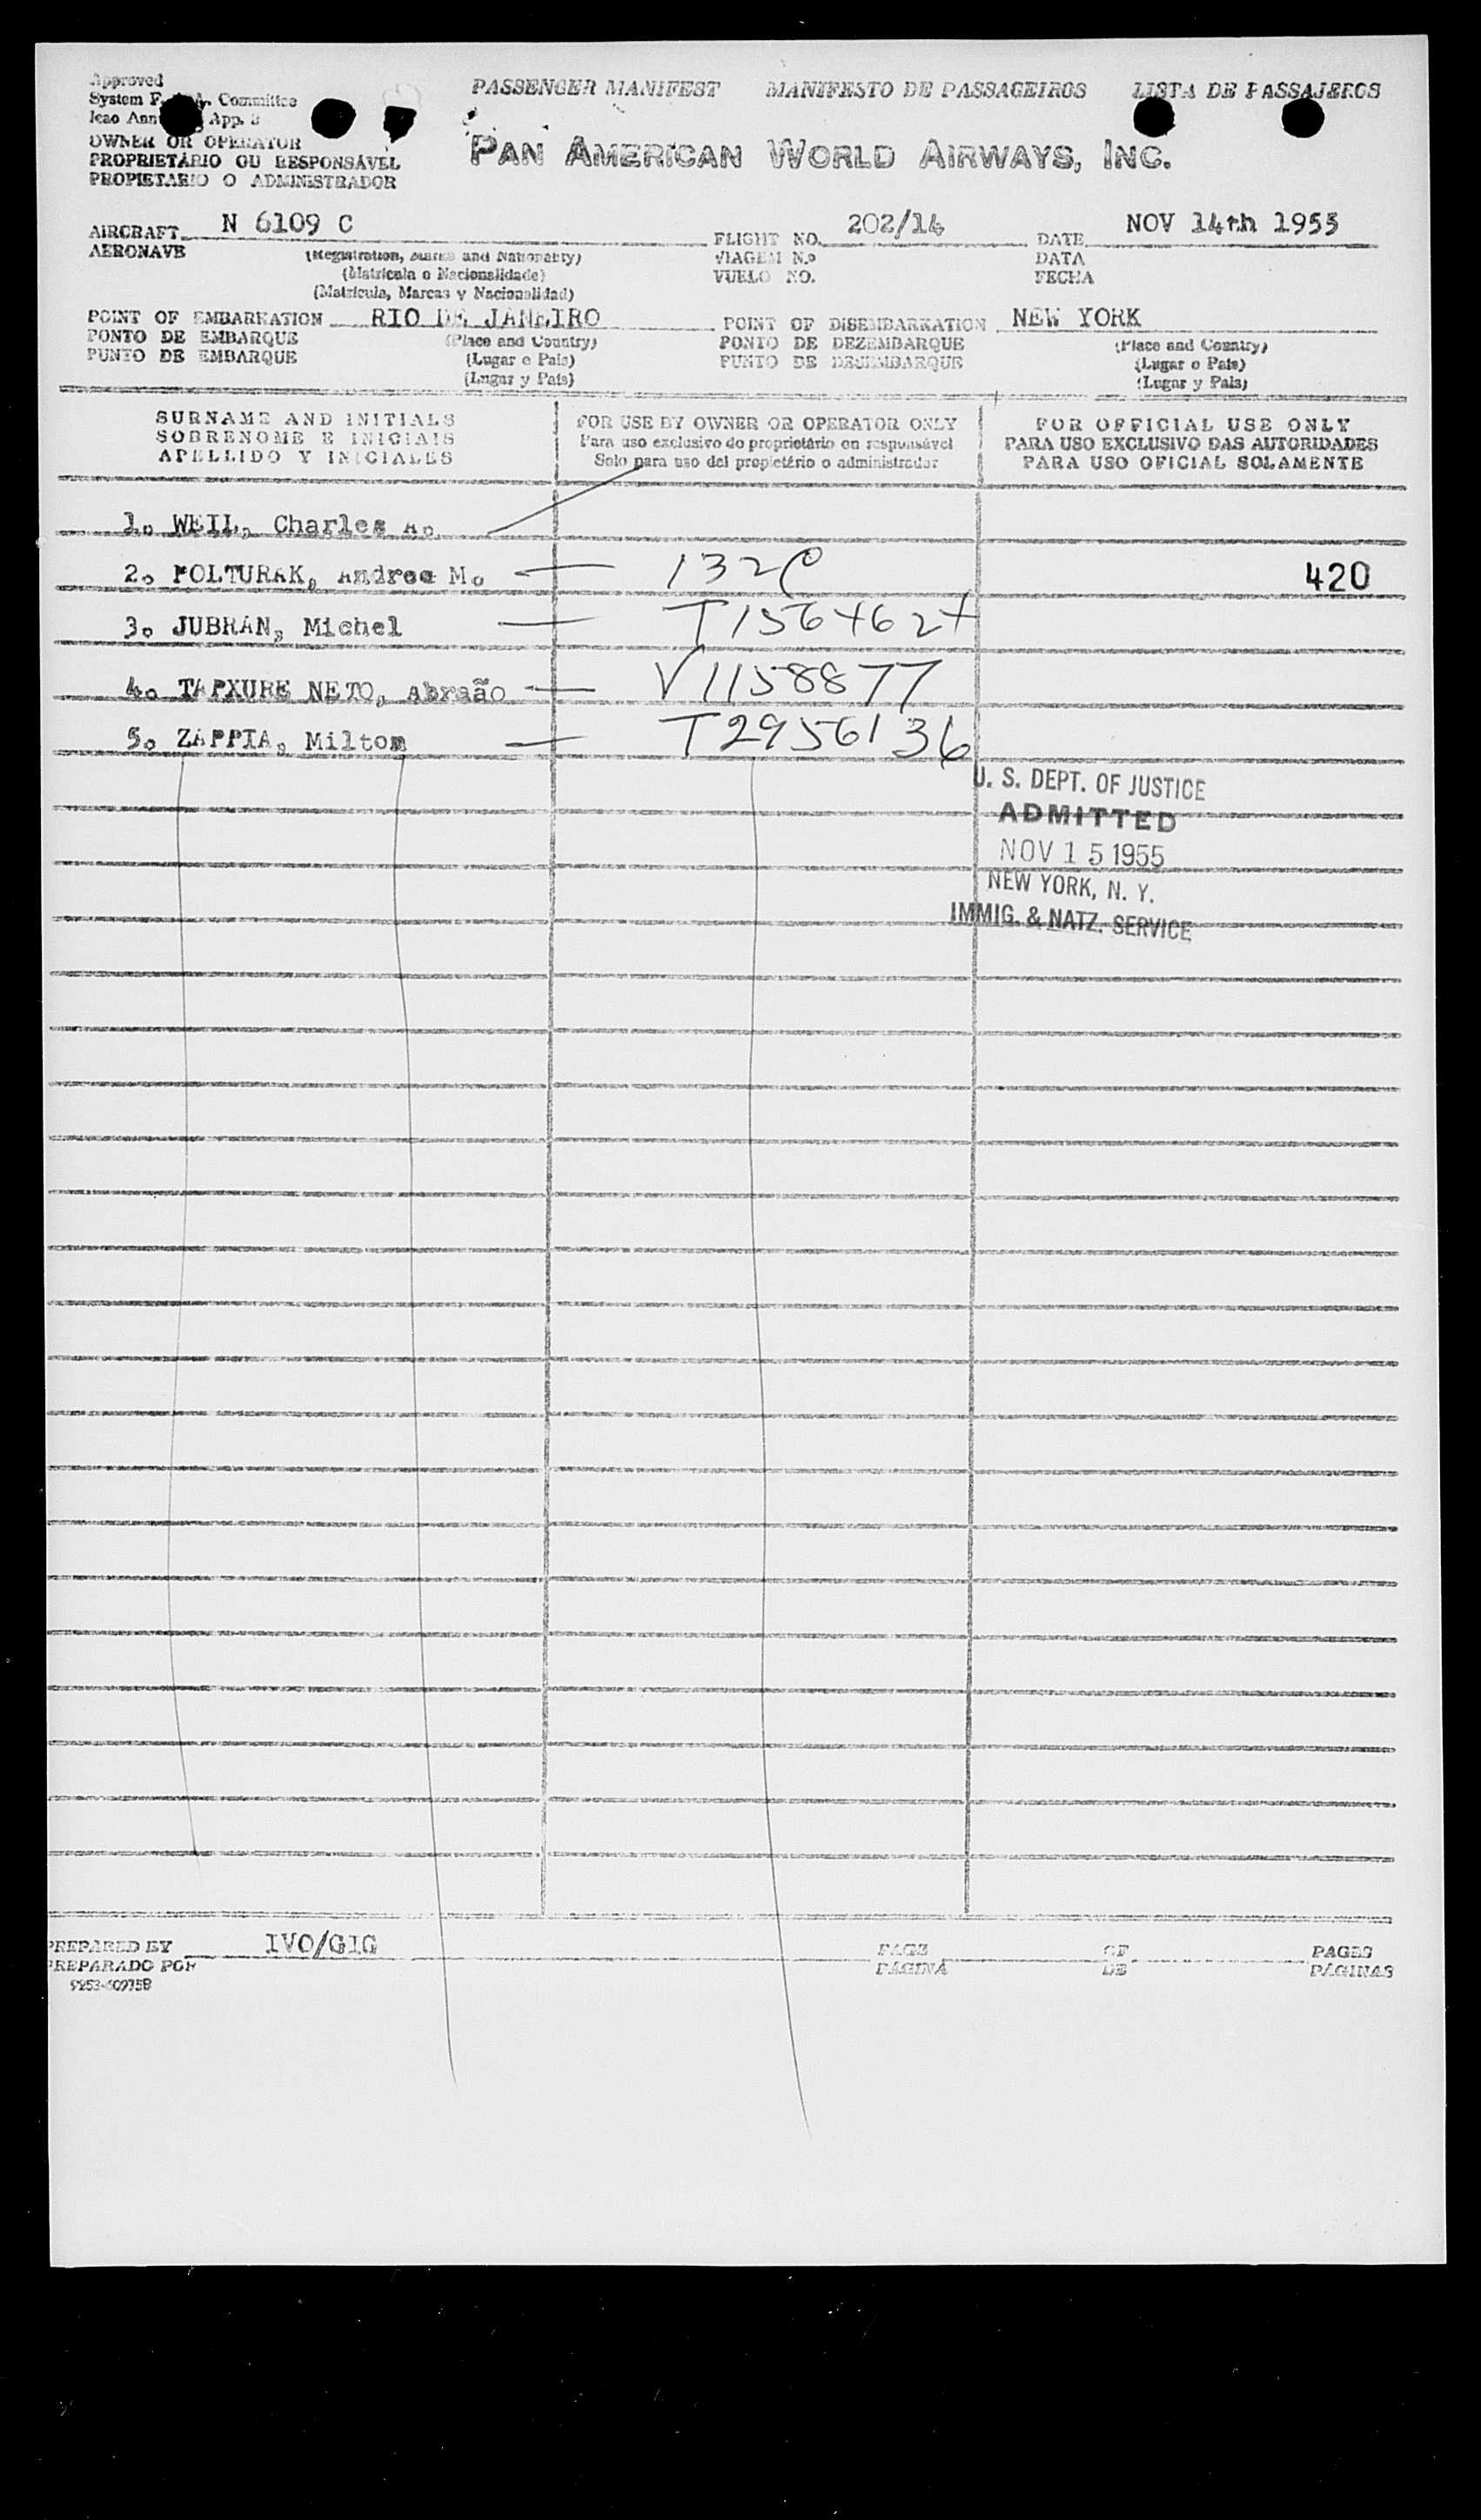 PASSENGER MANIFEST MANIFESTO DE PASSAGEIROS LISTA DE PASSAJEROS
Approved
System F. A. Committee
Icao App. 3
OWNER OR OPERATOR
PROPRIETÁRIO OU RESPONSÁVEL
PROPIETARIO O ADMINISTRADOR
PAN AMERICAN WORLD AIRWAYS, INC.
AIRCRAFT N 6109 C FLIGHT NO. 202/14 DATE NOV 14th 1955
AERONAVE (Registration, Marks and Nationality) VIAGEM N.º DATA
(Matricula o Nacionalidade) VUELO NO. FECHA
(Matricula, Marcas y Nacionalidad)
POINT OF EMBARKATION RIO DE JANEIRO POINT OF DISEMBARKATION NEW YORK
PONTO DE EMBARQUE (Place and Country) PONTO DE DEZEMBARQUE (Place and Country)
PUNTO DE EMBARQUE (Lugar e Pais) PUNTO DE DESEMBARQUE (Lugar e Pais)
(Lugar y Pais) (Lugar y Pais)
SURNAME AND INITIALS FOR USE BY OWNER OR OPERATOR ONLY FOR OFFICIAL USE ONLY
SOBRENOME E INICIAIS Para uso exclusivo do proprietário ou responsável PARA USO EXCLUSIVO DAS AUTORIDADES
APELLIDO Y INICIALES Solo para uso del propietário o administrador PARA USO OFICIAL SOLAMENTE
1. WEIL, Charles A.
2. POLTURAK, Andree M. — 132 420
3. JUBRAN, Michel —
4. TAPXURE NETO, Abraão — V1158877
5. ZAPPIA, Milton — T2956136
U. S. DEPT. OF JUSTICE
ADMITTED
NOV 15 1955
NEW YORK, N. Y.
IMMIG. & NATZ. SERVICE
PREPARED BY IVO/GIG PAGE OF PAGES
PREPARADO POR PÁGINA DE PÁGINAS